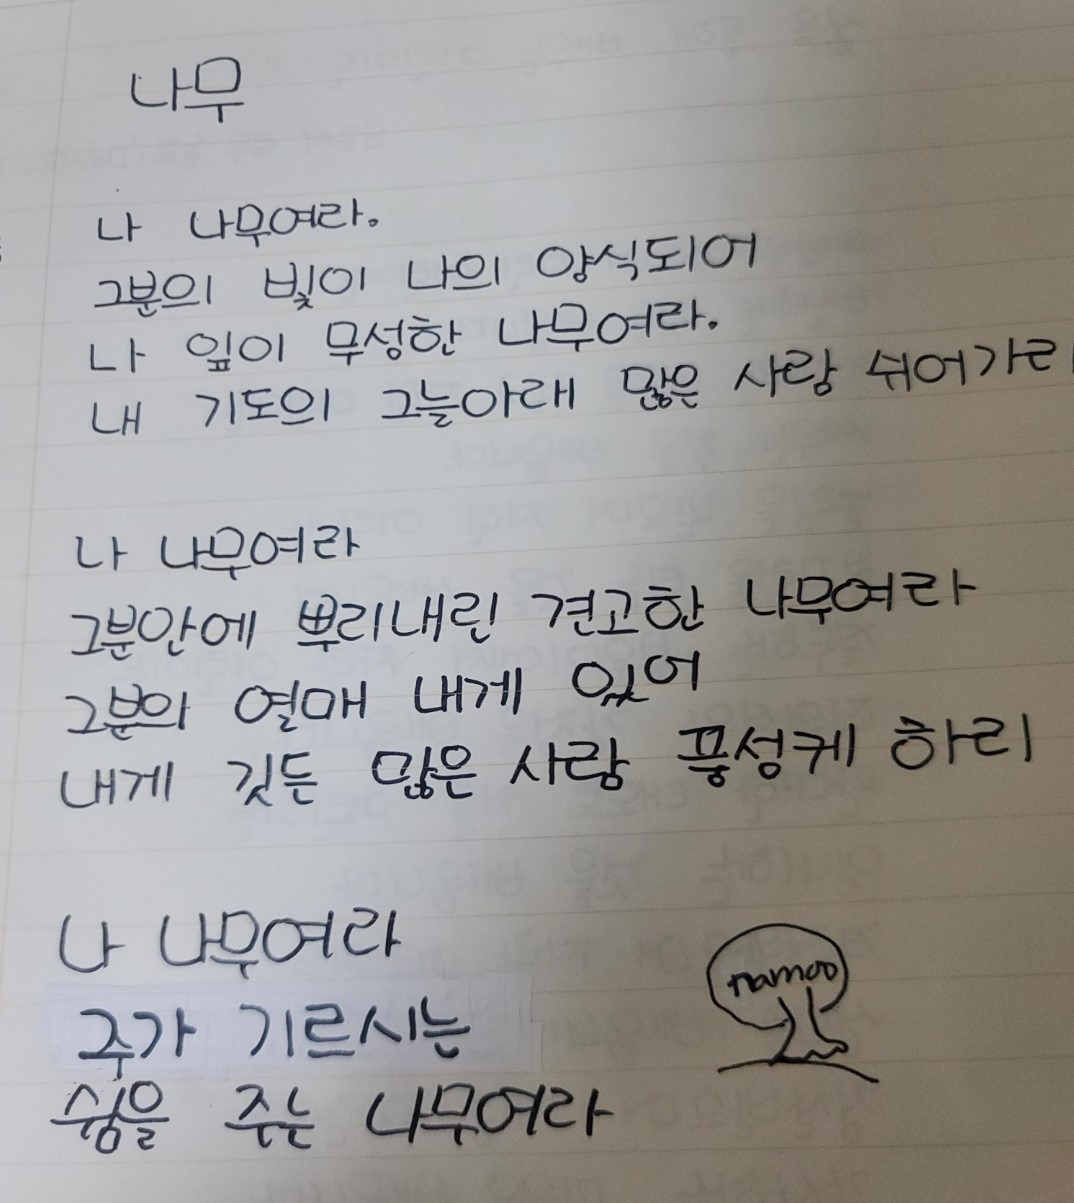 나무
나 나무여라.
그분의 빛이 나의 양식되어
나 잎이 무성한 나무여라.
내 기도의 그늘아래 많은 사람 쉬어가리
나 나무여라
그분안에 뿌리내린 견고한 나무여라
그분의 열매 내게 있어
내게 깃든 많은 사람 풍성케 하리
나 나무여라
주가 기르시는
쉼을 주는 나무여라
namoo